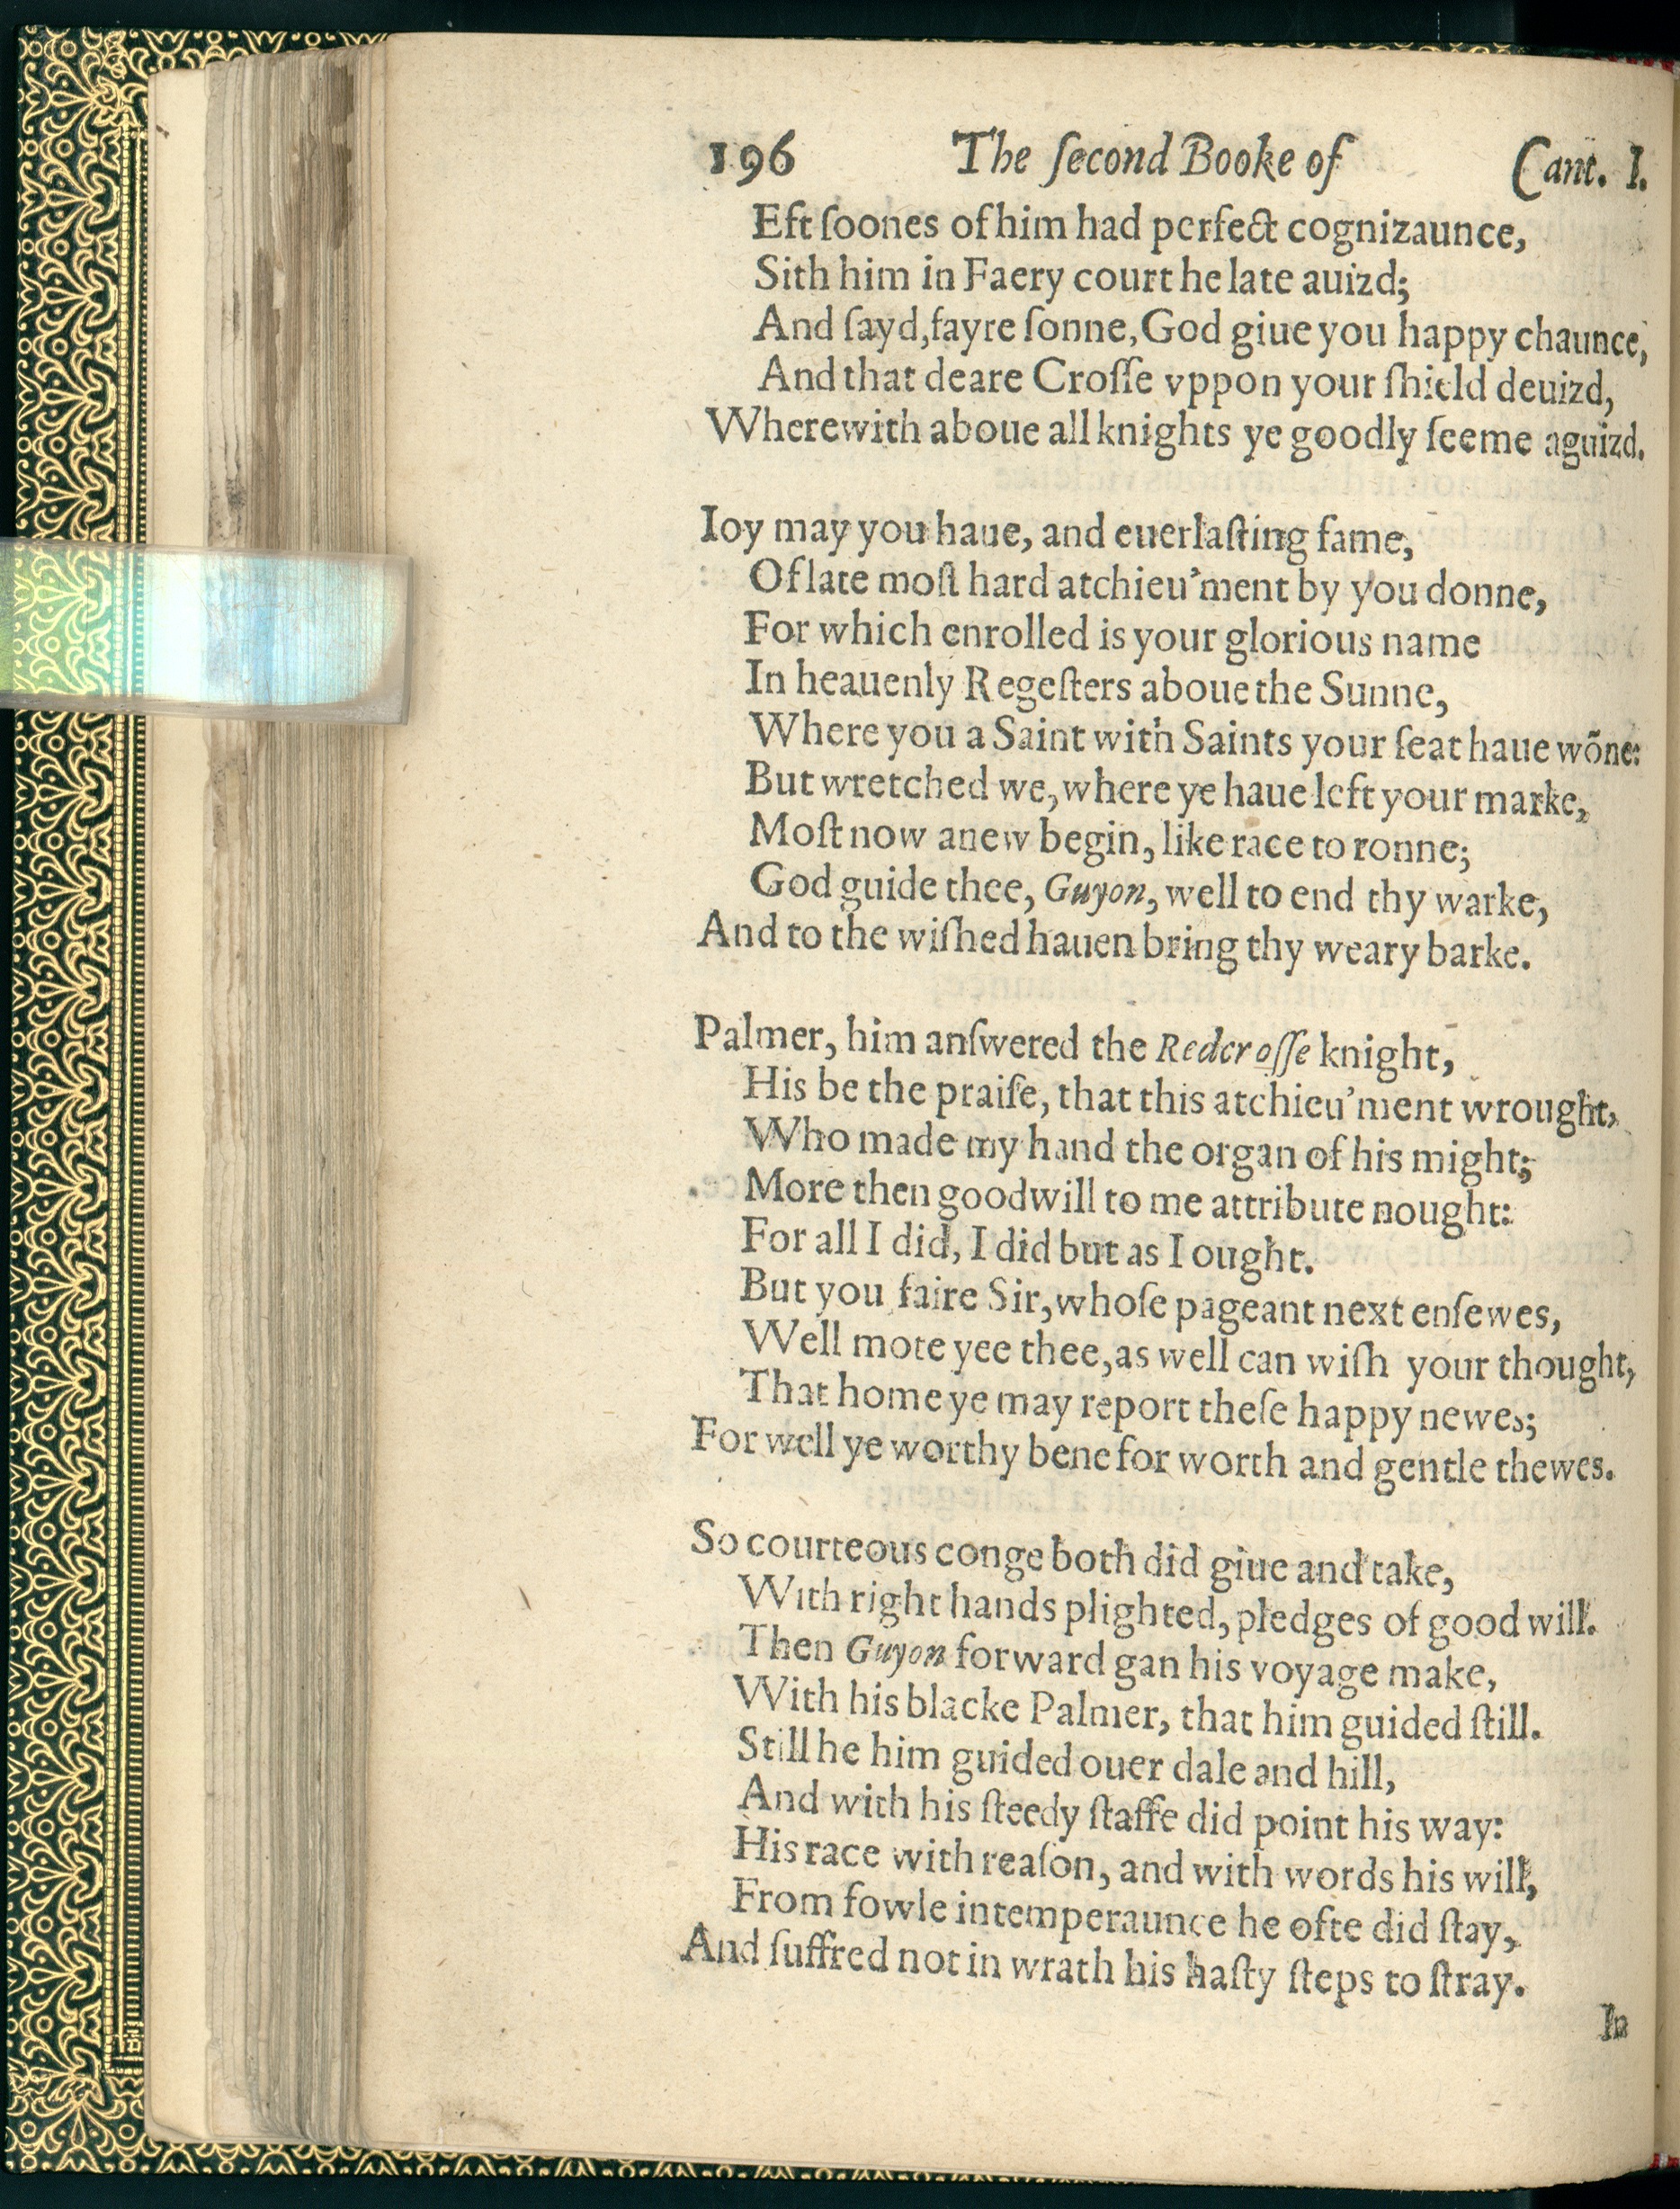 196 The ſecond Booke of Cant. I.
Eft ſoones of him had perfect cognizaunce,
Sith him in Faery court he late auizd;
And ſayd, fayre ſonne, God giue you happy chaunce,
And that deare Croſſe vppon your ſhield deuizd,
Wherewith aboue all knights ye goodly ſeeme aguizd.
Ioy may you haue, and euerlaſting fame,
Of late moſt hard atchieu'ment by you donne,
For which enrolled is your glorious name
In heauenly Regeſters aboue the Sunne,
Where you a Saint with Saints your ſeat haue wõne:
But wretched we, where ye haue left your marke,
Moſt now anew begin, like race to ronne;
God guide thee, Guyon, well to end thy warke,
And to the wiſhed hauen bring thy weary barke.
Palmer, him anſwered the Redcroſſe knight,
His be the praiſe, that this atchieu'ment wrought,
Who made my hand the organ of his might;
More then goodwill to me attribute nought:
For all I did, I did but as I ought.
But you faire Sir, whoſe pageant next enſewes,
Well mote yee thee, as well can wiſh your thought,
That home ye may report theſe happy newes;
For well ye worthy bene for worth and gentle thewes.
So courteous conge both did giue and take,
With right hands plighted, pledges of good will.
Then Guyon forward gan his voyage make,
With his blacke Palmer, that him guided ſtill.
Still he him guided ouer dale and hill,
And with his ſteedy ſtaffe did point his way:
His race with reaſon, and with words his will,
From fowle intemperaunce he ofte did ſtay,
And ſuffred not in wrath his haſty ſteps to ſtray.
In